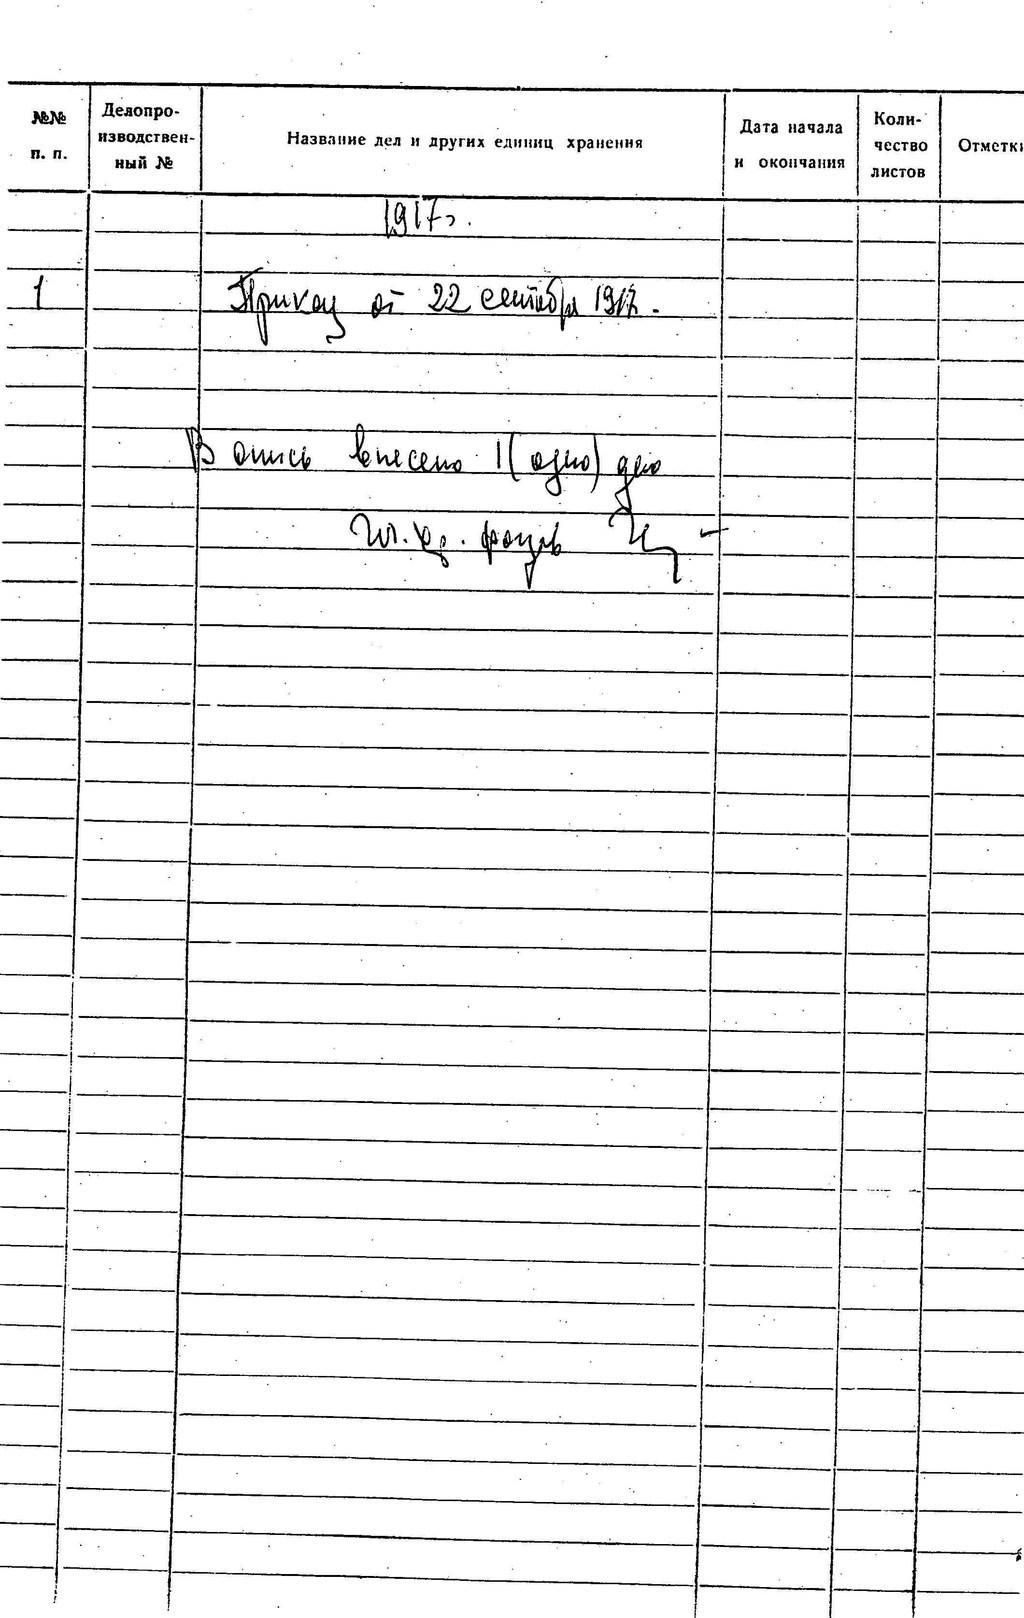 №№ п. п.
Делопро-изводствен-ный №
Название дел и других единиц хранения
Дата начала и окончания
Коли-чество листов
Отметки
1917г.
1 Приказ от 22 сентября 1917.
В опись внесено 1 (одно) дело
хр. фондов